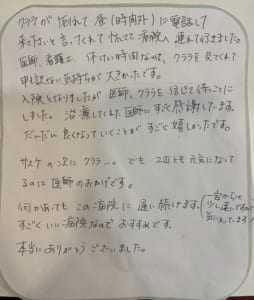 クララが倒れて昼(時間外)に電話して
来て下さいと言ってくれて慌てて病院へ連れて行きました。
医師、看護士、休けい時間なのに、クララを見てくれて
申し訳ない気持ちが大きかったです。
入院となりましたが医師、クララを信じて待つことに
しました。治療してくれた医師にすごく感謝しています。
だんだん良くなっていくことがすごく嬉しかったです。
サスケの次にクララ…。でも2匹とも元気になって
るのは医師のおかげです。
何かあってもこの病院に通い続けます。
(家からは
少し遠いですが
気に入ってます!)
すごくいい病院なのでおすすめです。
本当にありがとうございました。